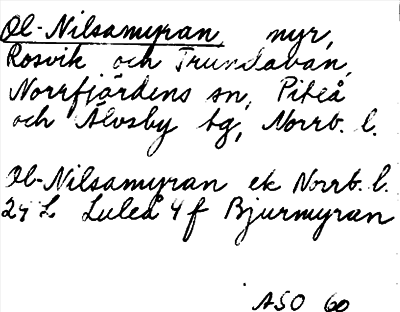 Ol-Nilsamyran, myr,
Rosvik och Trundavan,
Norrfjärdens sn, Piteå
och Älvsby tg, Norrb. l.
Ol-Nilsamyran ek Norrb. l.
24 L Luleå 4 f Bjurmyran
ASO 60